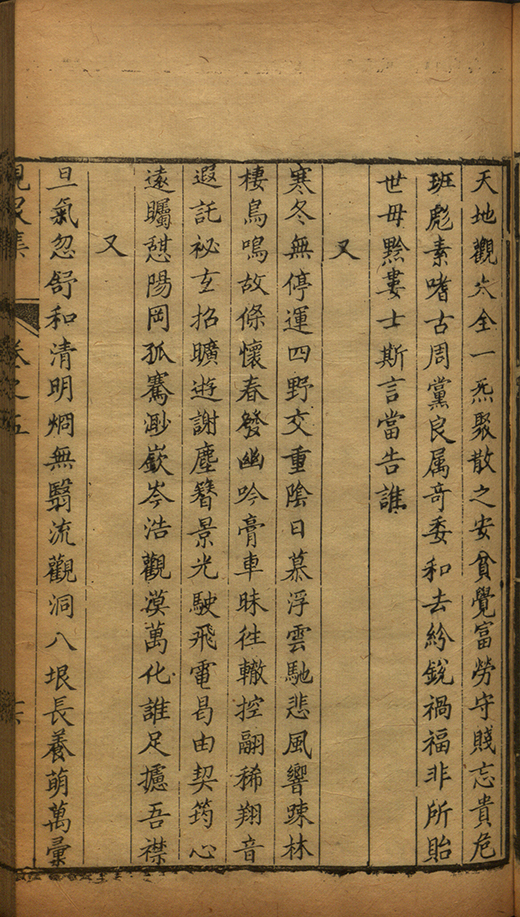 天地觀大全一炁聚散之安貧覺富勞守賤忘貴危
班彪素嗜古周黨良属奇委和去紛銳禍福非所貽
世毋黔婁士斯言當告誰
又
寒冬無停運四野交重陰日慕浮雲馳悲風響踈林
棲鳥鳴故條懷春發幽吟膏車昧徃轍控翮稀翔音
遐託祕玄招曠遊謝塵簪景光駛飛電曷由契筠心
遠矚憇陽岡孤騫渺嶔岑浩觀漠萬化誰足攄吾襟
又
旦氣忽舒和清明烱無翳流觀洞八垠長養萌萬彙
卷之五